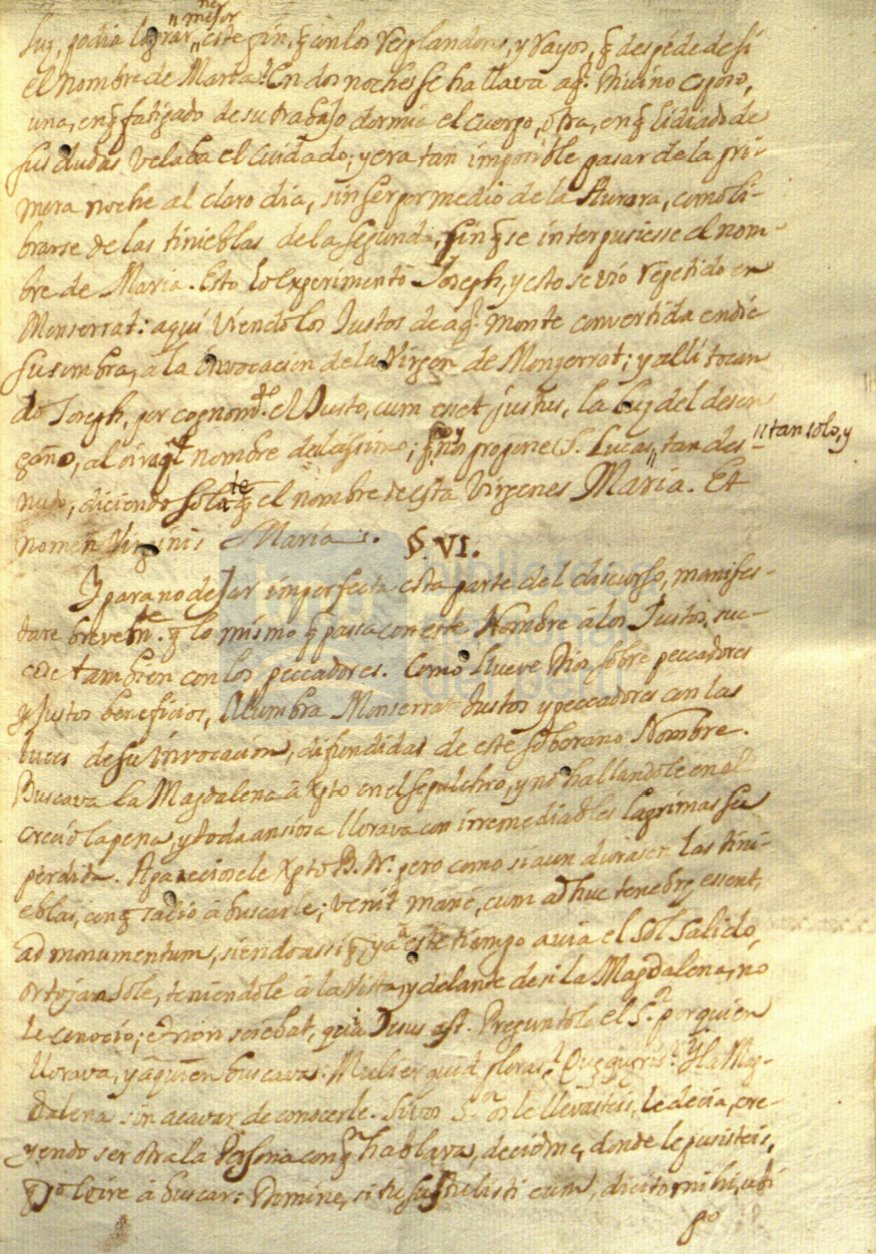 mejor
luz, podia lograr este fin, q̃ con los resplandores, y rayos, q̃ despide de sí
el nombre de Maria. En dos noches se hallava aql. Divino esposo,
una, en q̃ fatigado de su trabajo dormia el cuerpo, otra, en q̃ lidiado de
sus dudas velaba el cuidado; y era tan imposible pasar de la pri-
mera noche al claro dia, sin ser por medio de la Aurora, como li-
brarse de las tinieblas de la segunda, sin q̃ se interpusiesse el nom-
bre de Maria. Esto lo experimentó Joseph, y esto se vió repetido en
Monserrat: aquí viendo los Justos de aql. monte convertida en dia
su sombra, a la invocacion de la Virgen de Monserrat; y alli tocan
do Joseph, por cognomto. el Justo, cum esset justus, la luz del desen
gaño, al oir aql nombre dulcissimo; q̃ nos propone S. Lucas, tan des- tan solo, y
nudo, diciendo solamte q̃ el nombre de esta Virgen es Maria. Et
nomen Virginis Maria. §. VI.
Y para no dejar imperfecta esta parte del discurso, manifes-
tare brevemte. q̃ lo mismo q̃ passa con este Nombre â los Justos, suc-
cede tambien con los peccadores. Como llueve Dios sobre peccadores
y Justos beneficios, Alumbra Monserrat Justos y peccadores con las
luces de su invocacion, difundidas de este soberano Nombre.
Buscava la Magdalena â Xpto en el sepulchro, y no hallandole en el
creció la pena, y toda ansiosa llorava con irremediables lagrimas su
perdida. Apareciosele Xpto B. N. pero como si aun durasen las tini-
eblas, con q̃ salió â buscarle; venit mané, cum adhuc tenebrę essent,
ad monumentum, siendo assi q̃ ya a este tiempo avia el sol salido,
orto jam sole, teniendole â la vista, y delante de si la Magdalena, no
le conoció; et non sciebat, quia Jesus est. Preguntóla el Sr. por quien
llorava, y a quien buscava: Mulier quid ploras? Quę quęris? Y la Mag-
dalena sin acavar de conocerle. Si vos Sor. os le llevasteis, le decia, cre-
yendo ser otra la Persona con qn hablava, decidme, donde le pusisteis,
q̃ Yo lo ire â buscar: Domine, si tu sustulisti eum, dicito mihi, ubi
po